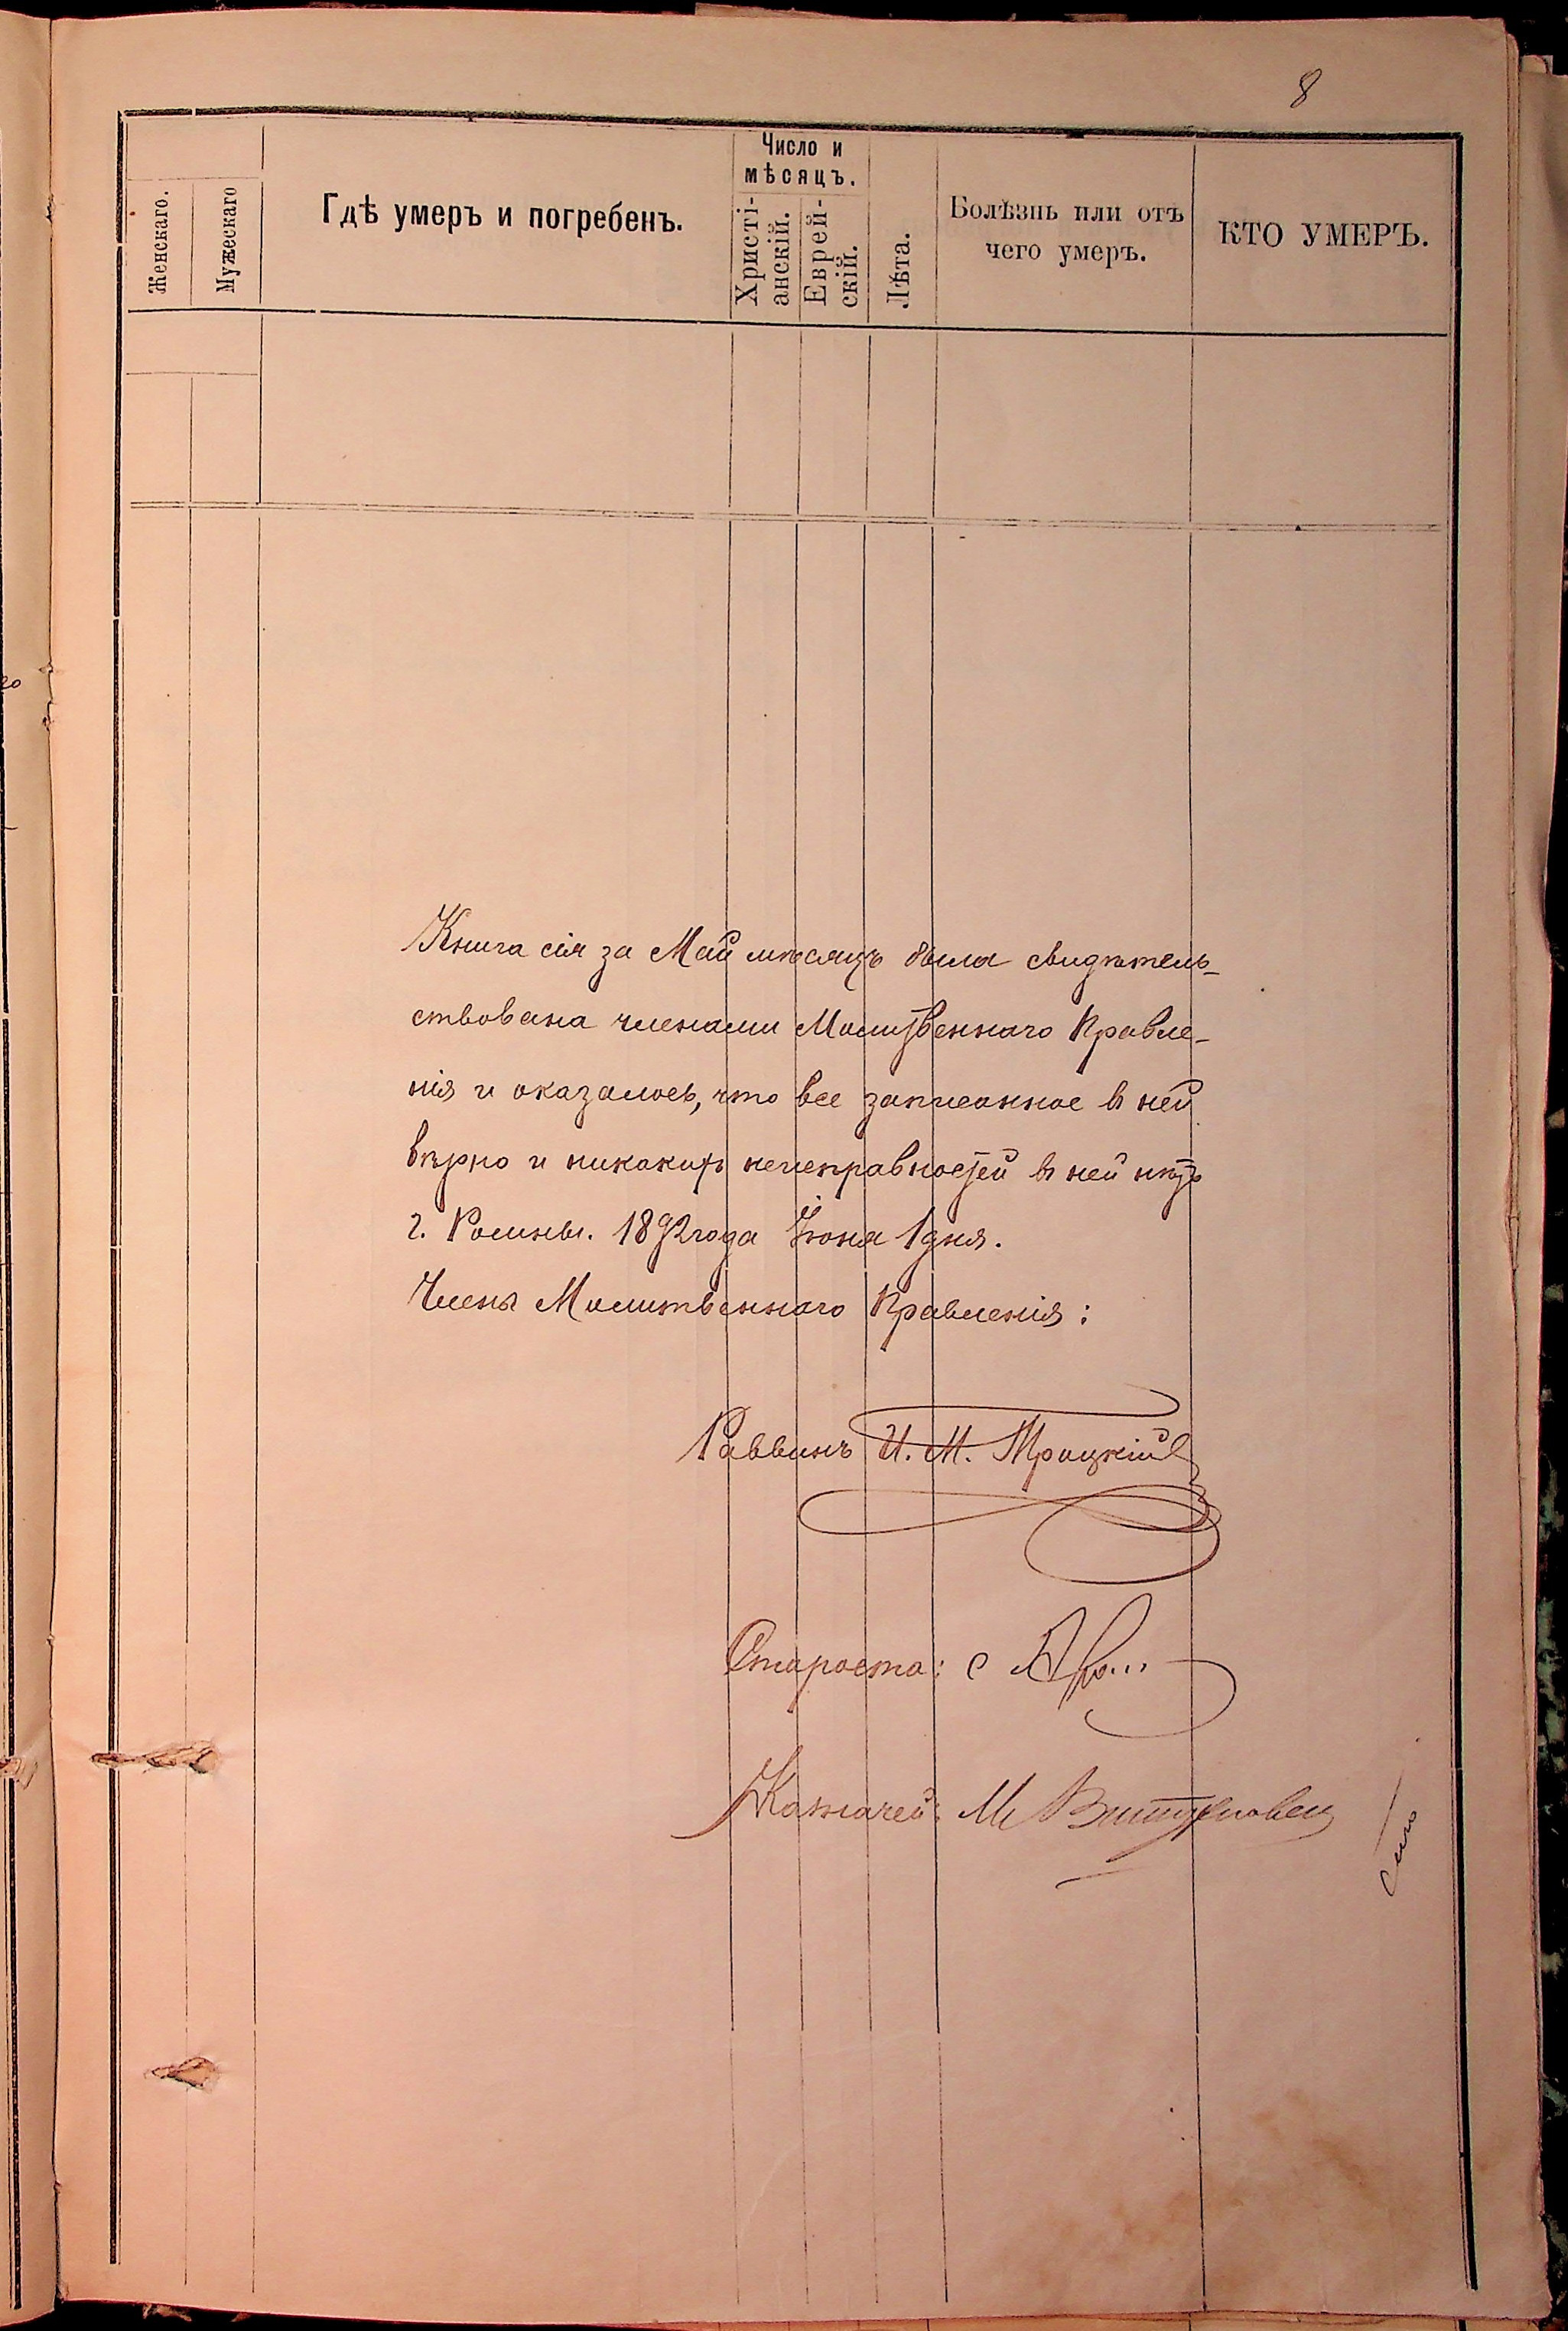 8
Женскаго.
Мужескаго
Гдѣ умеръ и погребенъ.
Число и
мѣсяцъ.
Христі-
анскій.
Еврей-
скій.
Лѣта.
Болѣзнь или отъ
чего умеръ.
КТО УМЕРЪ.
Книга сія за Май мѣсяцъ была свидѣтель-
ствована членами Молитвеннаго Правле-
нія и оказалось, что все записанное въ ней
вѣрно и никакихъ неисправностей въ ней нѣтъ
г. Ромны. 1892 года Іюня 1 дня.
Члены Молитвеннаго Правленія:
Раввинъ И. М. Троцкій
Староста: С
Казначей: М